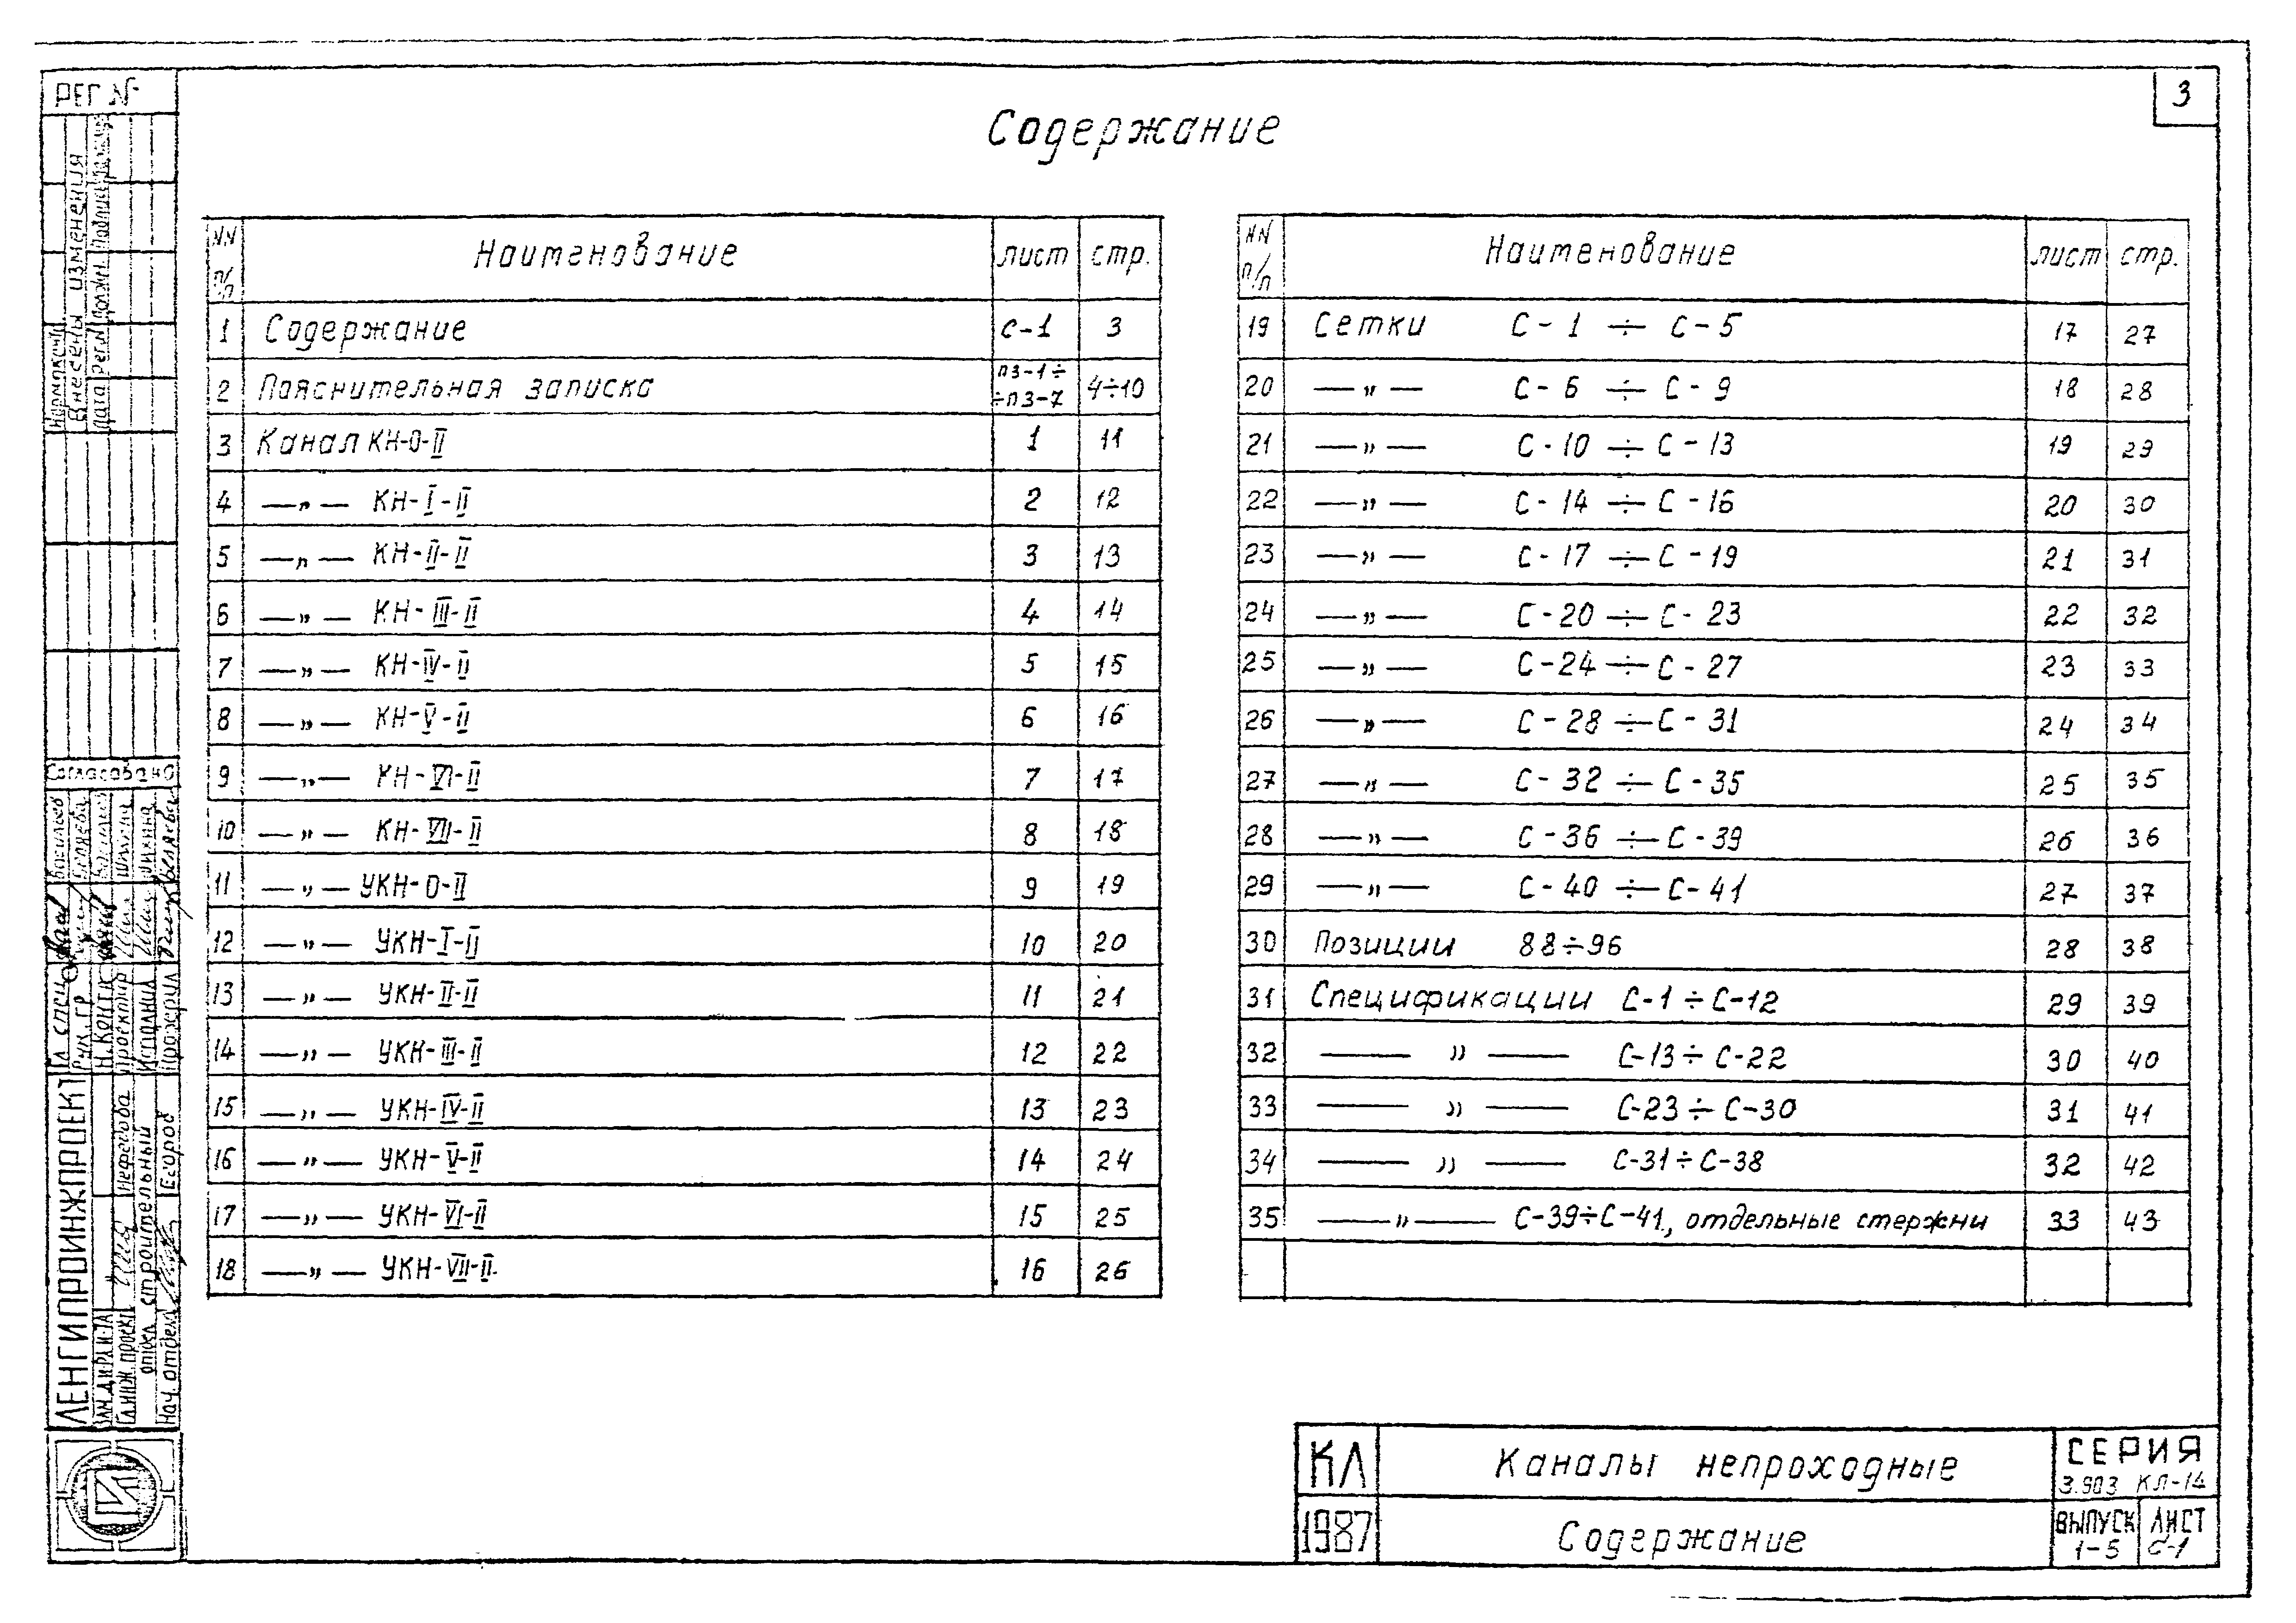 3
Содержание
NN п/п Наименование лист стр.
1 Содержание С-1 3
2 Пояснительная записка ПЗ-1÷ ÷ПЗ-7 4÷10
3 Канал КН-0-II 1 11
4 —„— КН-I-II 2 12
5 —„— КН-II-II 3 13
6 —„— КН-III-II 4 14
7 —„— КН-IV-II 5 15
8 —„— КН-V-II 6 16
9 —„— КН-VI-II 7 17
10 —„— КН-VII-II 8 18
11 —„— УКН-0-II 9 19
12 —„— УКН-I-II 10 20
13 —„— УКН-II-II 11 21
14 —„— УКН-III-II 12 22
15 —„— УКН-IV-II 13 23
16 —„— УКН-V-II 14 24
17 —„— УКН-VI-II 15 25
18 —„— УКН-VII-II 16 26
NN п/п Наименование лист стр.
19 Сетки С-1 ÷ С-5 17 27
20 —„— С-6 ÷ С-9 18 28
21 —„— С-10 ÷ С-13 19 29
22 —„— С-14 ÷ С-16 20 30
23 —„— С-17 ÷ С-19 21 31
24 —„— С-20 ÷ С-23 22 32
25 —„— С-24 ÷ С-27 23 33
26 —„— С-28 ÷ С-31 24 34
27 —„— С-32 ÷ С-35 25 35
28 —„— С-36 ÷ С-39 26 36
29 —„— С-40 ÷ С-41 27 37
30 Позиции 88÷96 28 38
31 Спецификации С-1÷С-12 29 39
32 —„— С-13÷С-22 30 40
33 —„— С-23÷С-30 31 41
34 —„— С-31÷С-38 32 42
35 —„— С-39÷С-41, отдельные стержни 33 43
КЛ Каналы непроходные СЕРИЯ 3.903 КЛ-14
1987 Содержание ВЫПУСК 1-5 ЛИСТ С-1
РЕГ №
Внесены изменения
Дата Рег.№ Должн. Подпись
Согласовано
Гл. спец.
Рук. гр.
Н. Контр.
Проектир.
Исполнил
Проверил Беляева
ЛЕНГИПРОИНЖПРОЕКТ
Зам. дир. ин-та
Гл. инж. проект. Нефедова
отдел строительный
Нач. отдела Егоров